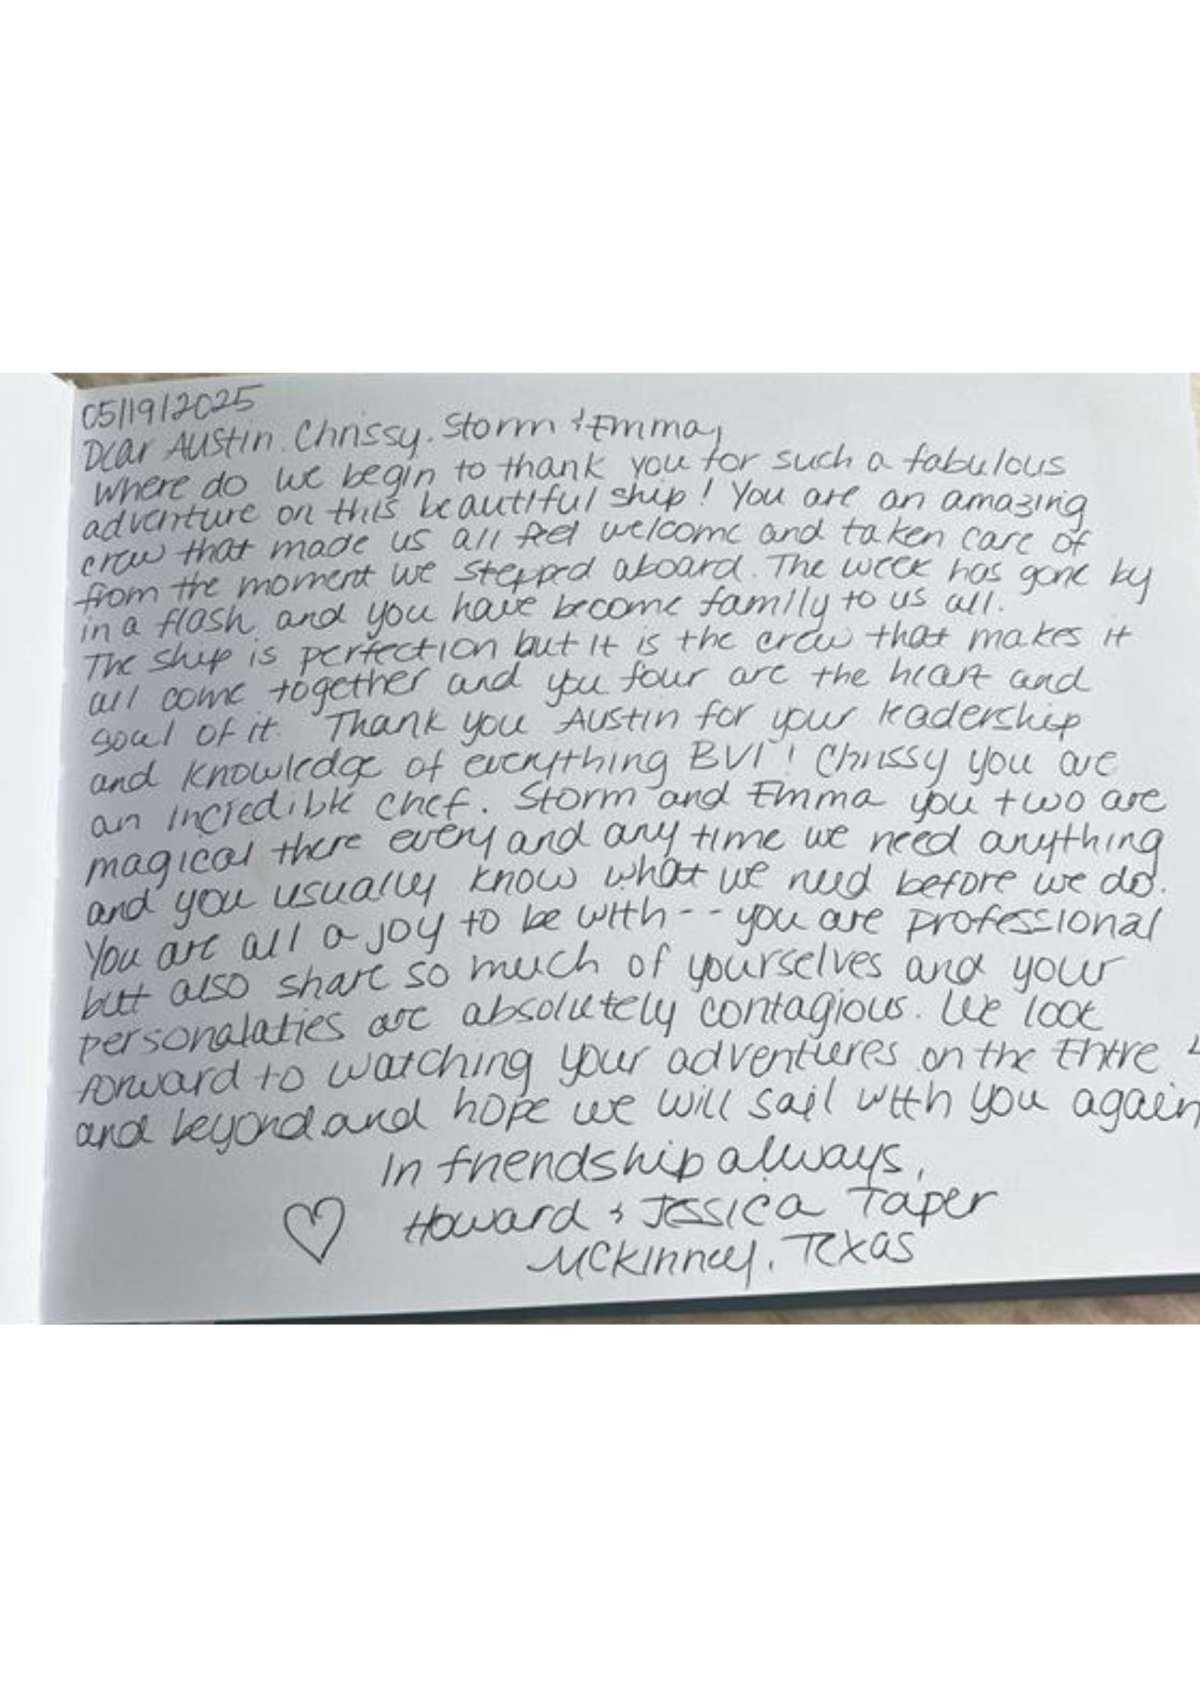 05/19/2025
Dear Austin, Chrissy, Storm & Emma,
Where do we begin to thank you for such a fabulous
adventure on this beautiful ship! You are an amazing
crew that made us all feel welcome and taken care of
from the moment we stepped aboard. The week has gone by
in a flash and you have become family to us all.
The ship is perfection but it is the crew that makes it
all come together and you four are the heart and
soul of it. Thank you Austin for your leadership
and knowledge of everything BVI! Chrissy you are
an incredible chef. Storm and Emma you two are
magical there every and any time we need anything
and you usually know what we need before we do.
You are all a joy to be with -- you are professional
but also share so much of yourselves and your
personalaties are absolutely contagious. We look
forward to watching your adventures on the Entre
and beyond and hope we will sail with you again
In friendship always,
Howard & Jessica Taper
McKinney, Texas